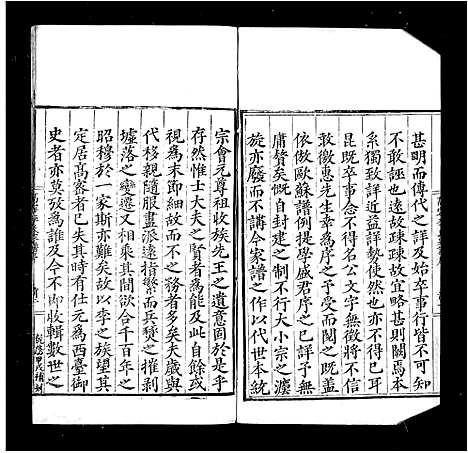 甚明而傳代之詳及始卒事行皆不可知
不敢誣也遠故疎疎故宜略甚則闕焉本
系獨致詳近益詳勢使然也亦不得已耳
昆既卒事念不得名公文字無徵將不信
敢徼惠先生幸為序之予受而閱之既蓋
依倣歐蘇譜例提學戚君序之已詳予無
庸贅矣慨自封建之制不行大小宗之瀍
旋亦廢而不講今家譜之作以代世本統
宗會元尊祖收族先王之遺意固於是乎
存然惟士大夫之賢者為能及此自餘或
視為末節細故而不之務者多矣夫歲與
代移親隨服盡派遠指繁而兵燹之摧剥
墟落之變遷又相乘其間欲合千百年之
昭穆於一家斯亦難矣故以李之族望其
定居高
者已失其時有仕元為西臺御
史者亦莫攷為誰及今不即收輯數世之